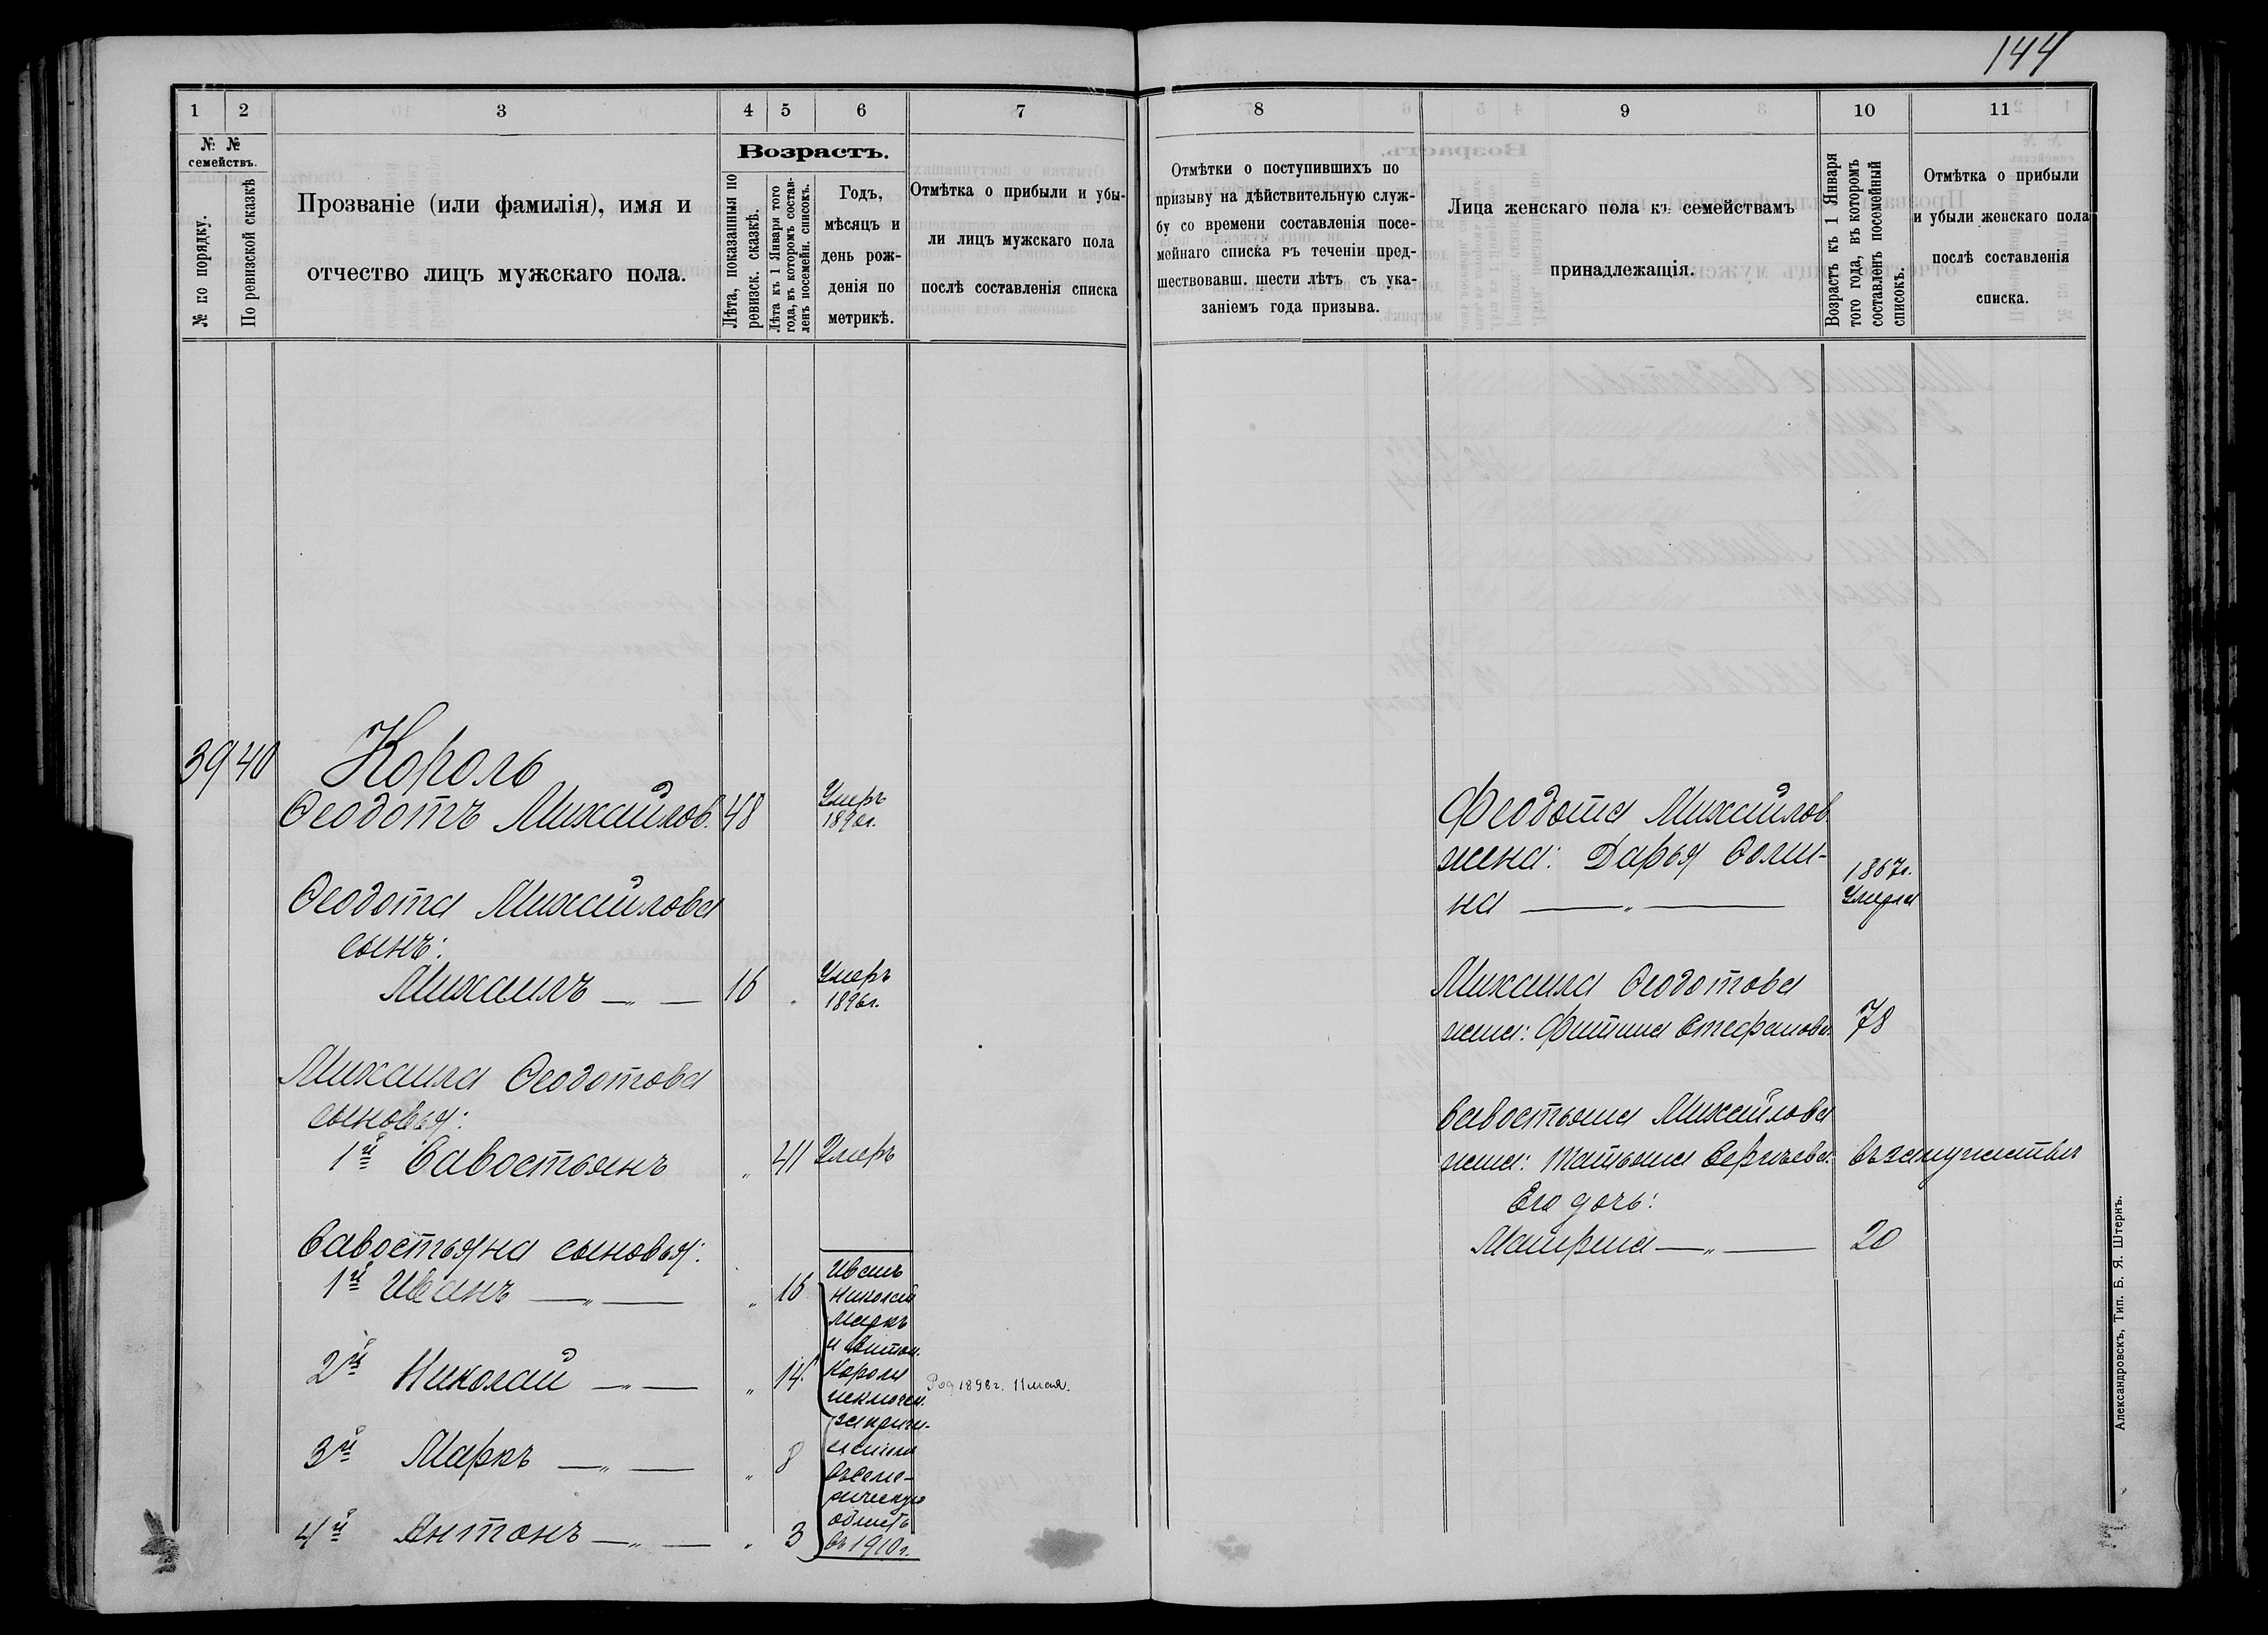 144
1
2
3
4
5
6
7
№ №
семействъ.
№ по порядку.
По ревизской сказкѣ
Прозваніе (или фамилія), имя и
отчество лицъ мужскаго пола.
Возрастъ.
Лѣта, показанныя по
ревизск. сказкѣ.
Лѣта къ 1 Января того
года, въ которомъ состав-
ленъ посемейн. списокъ.
Годъ,
мѣсяцъ и
день рож-
денія по
метрикѣ.
Отмѣтка о прибыли и убы-
ли лицъ мужскаго пола
послѣ составленія списка
39 40 Король
Ѳеодотъ Михайлов. 48
Умеръ
1890г.
Ѳеодота Михайлова
сынъ:
Михаилъ — „ — 16
Умеръ
1896г.
Михаила Ѳеодотова
сыновья:
1й Савостьянъ „ 41 Умеръ
Савостьяна сыновья:
1й Иванъ — „ — „ 16
2й Николай — „ — „ 14
3й Маркъ — „ — „ 8
4й Антонъ — „ — „ 3
Иванъ
Николай
Маркъ
и Антон.
Короли
исключен.
за
въ Семи-
рѣченскую
область
въ 1910 г.
Род 1898г. 11 мая.
8
9
10
11
Отмѣтки о поступившихъ по
призыву на дѣйствительную служ-
бу со времени составленія посе-
мейнаго списка въ теченіи пред-
шествовавш. шести лѣтъ съ ука-
заніемъ года призыва.
Лица женскаго пола къ семействамъ
принадлежащія.
Возрастъ къ 1 Января
того года, въ которомъ
составленъ посемейный
списокъ.
Отмѣтка о прибыли
и убыли женскаго пола
послѣ составленія
списка.
Феодота Михайлов.
жена: Дарья Ѳоми-
на — „ —
1867г.
Умерла
Михаила Ѳеодотова
жена: Фитина Стефанова 78
Савостьяна Михайлова
жена: Татьяна Сергѣева. въ замужествѣ
Его дочь:
Матрена — „ — 20
Александровскъ, Тип. Б. Я. Штернъ.